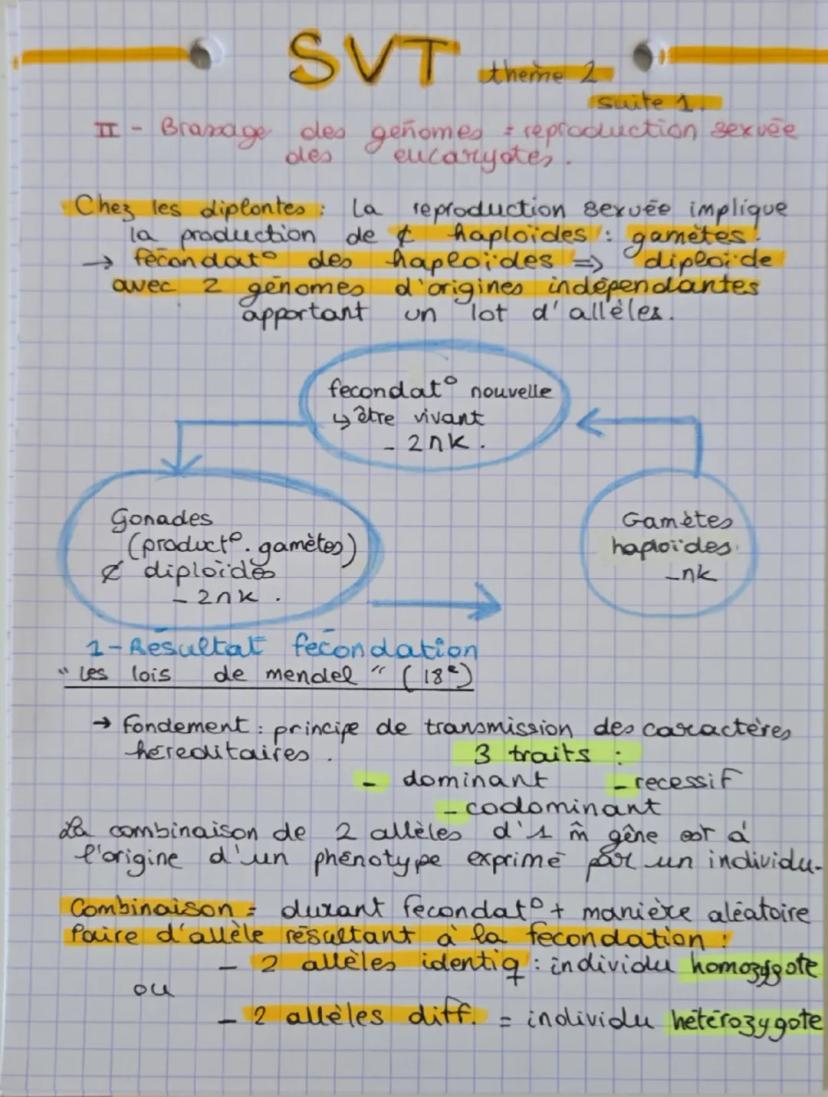 SVT thème 2
suite 1.
II - Brassage des génomes = reproduction sexuée
des eucaryotes.
Chez les diplontes : La reproduction sexuée implique
la production de ¢ haploïdes : gamètes.
→ fécondat° des haploïdes => diploïde
avec 2 génomes d'origines indépendantes
apportant un lot d'allèles.
fecondat° nouvelle
↳ être vivant
- 2nk.
Gonades
(product°. gamètes)
¢ diploïdes
- 2nk.
Gamètes
haploïdes.
-nk
1-Résultat fécondation
"Les lois de mendel" (18e)
→ fondement : principe de transmission des caractères
héréditaires. 3 traits :
- dominant - recessif
- codominant
La combinaison de 2 allèles d'1 m̂ gêne est à
l'origine d'un phénotype exprimé par un individu.
Combinaison = durant fecondat° + manière aléatoire
Paire d'allèle résultant à la fecondation :
- 2 allèles identiq : individu homozygote
ou
- 2 allèles diff. = individu hétérozygote